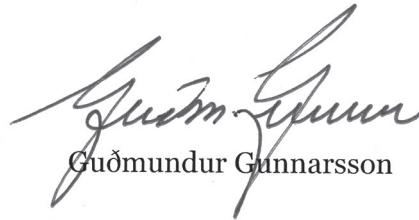 Guðm. Gunnar
Guðmundur Gunnarsson